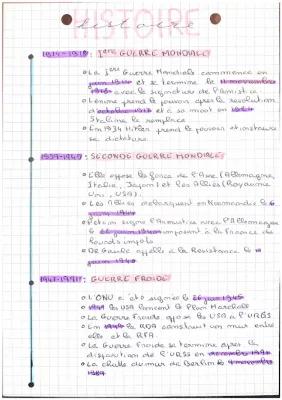 HISTOIRE
histoire
1914-1918: 1ère GUERRE MONDIALE
La 1ère Guerre Mondiale commence en
juin 1914 et se termine le 11 novembre
1918 avec la signature de l'Armistice
Lénine prend le pouvoir après la revolution
d'octobre 1917 et à sa mort en
Staline le remplace
En 1934 Hitler prend le pouvoir et instaure
sa dictature.
1939-1945: SECONDE GUERRE MONDIALE
Elle oppose les forces de l'Axe (Allemagne,
Italie, Japon) et les Alliés (Royaume
Uni, USA).
Les Alliés debarquent en Normandie le 6
juin 1944
Petain signe l'Armistice avec l'Allemagne
le 22 juin 1940 imposant à la France de
lourds impots
De Gaule appelle à la Resistance le
juin 1940
1947-1991: GUERRE FROIDE
L'ONU a été signée le 26 juin 1945
les USA lancent le Plan Marshall
La Guerre Froide oppose les USA à l'URSS
En la RDA construit un mur entre
elle et la RFA
La Guerre Froide se termine après la
disparition de l'URSS en decembre 1991
La chute du mur de Berlin le 9 novembre
1989